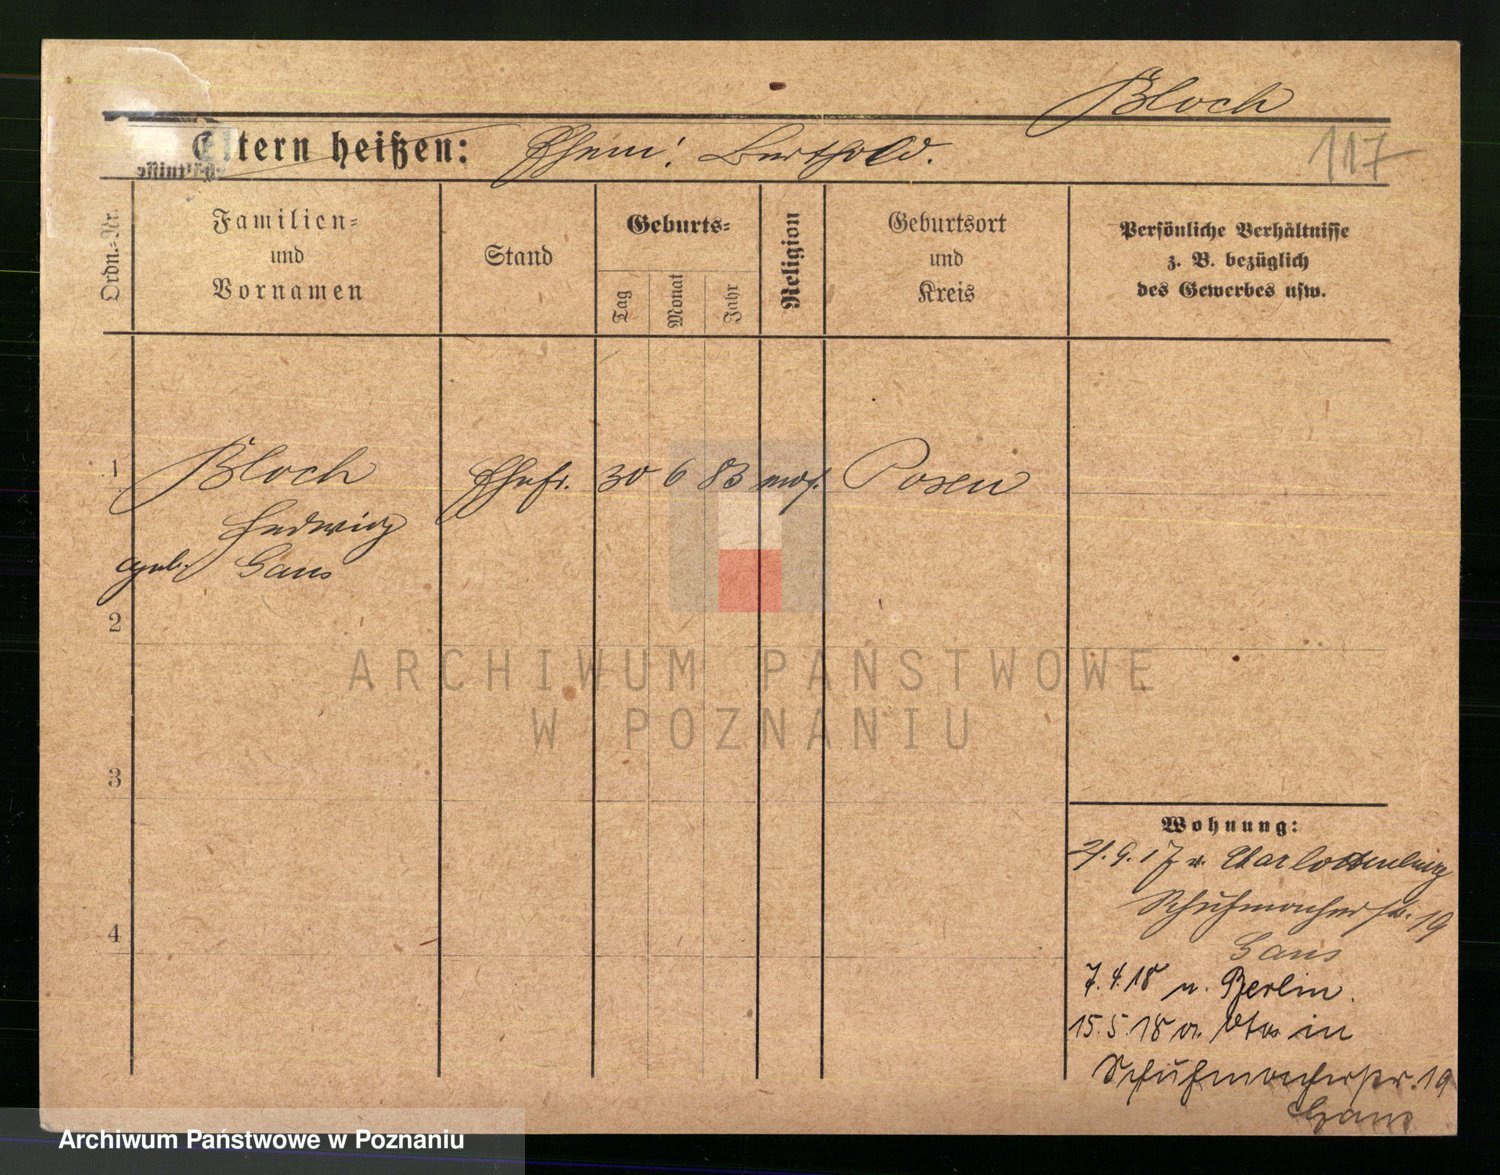 Bloch
117
Eltern heißen: Ehem: Berthold.
Ordn.-Nr.
Familien-
und
Vornamen
Stand
Geburts-
Tag
Monat
Jahr
Religion
Geburtsort
und
Kreis
Persönliche Verhältnisse
z. B. bezüglich
des Gewerbes usw.
1 Bloch Ehefr. 30 6 83 mos. Posen
Hedwig
geb. Gans
2
3
4
Wohnung:
21.9.17 v. Charlottenburg
Schuhmacherstr. 19
Gans
7.4.18 n. Berlin.
15.5.18 v. in
Schuhmacherstr. 19
Gans
ARCHIWUM PAŃSTWOWE
W POZNANIU
Archiwum Państwowe w Poznaniu